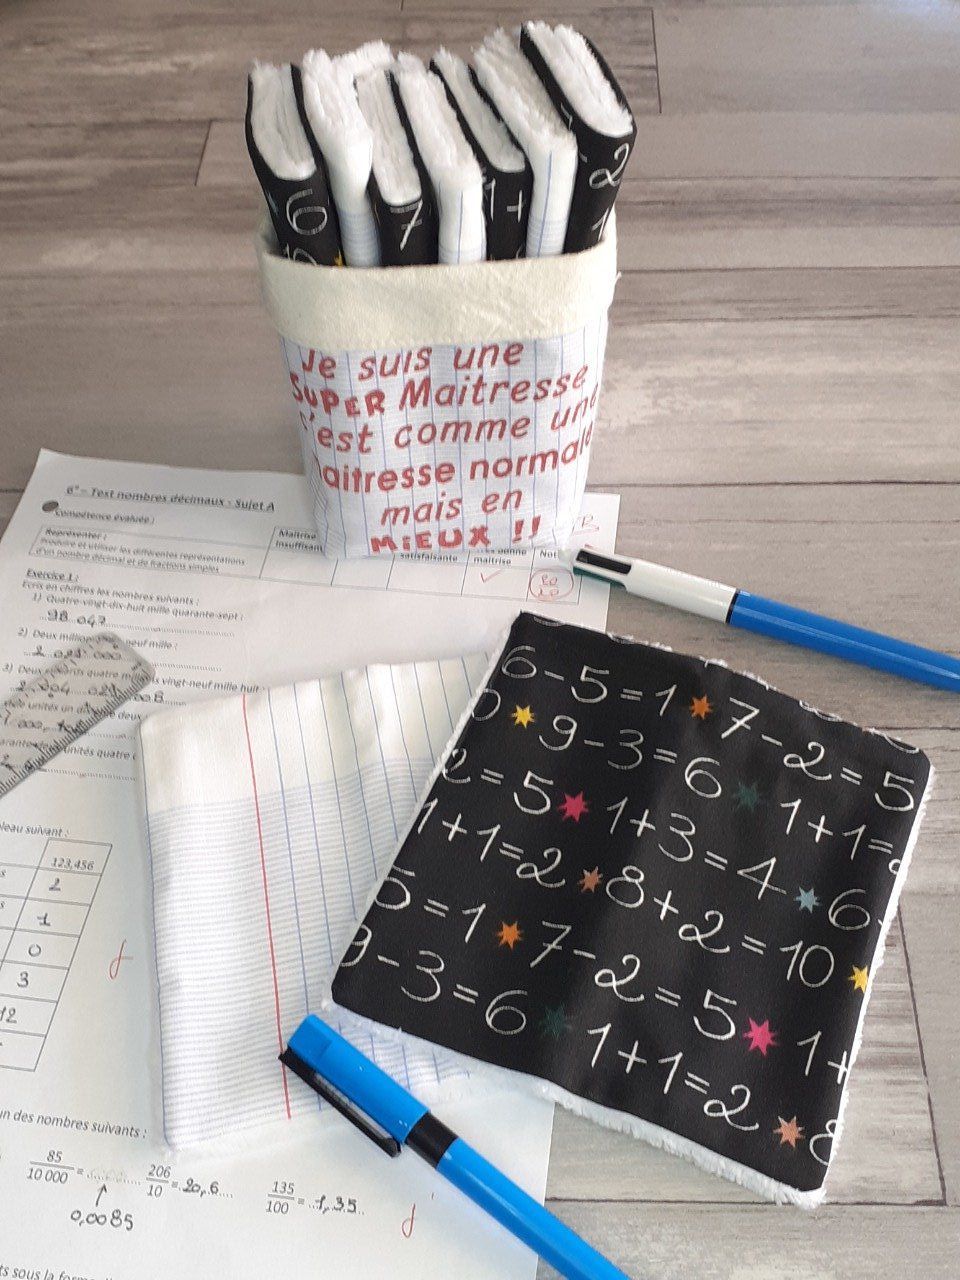 6
7
1+
-2
1
Je suis une
SUPER Maitresse
c'est comme une
maitresse normale
mais en
MiEUX !!
6° – Test nombres décimaux - Sujet A
Compétence évaluée :
Représenter :
Produire et utiliser les différentes représentations
d'un nombre décimal et de fractions simples
Maitrise
insuffisante
satisfaisante
bonne
maitrise
Note
20
20
Exercice 1 :
Ecris en chiffres les nombres suivants :
1) Quatre-vingt-dix-huit mille quarante-sept :
98 047
2) Deux millions neuf mille :
3)
vingt-neuf mille huit
unités quatre
6-5=1 7-2=5
9-3=6 1+1=
2=5 1+3=4 6
1+1=2 8+2=10
5=1 7-2=5 1+
9-3=6 1+1=2 8
tableau suivant :
123,456
2
1
0
3
12
un des nombres suivants :
85/10 000 = 206/10 = 20,6 135/100 = 1,35
0,0085